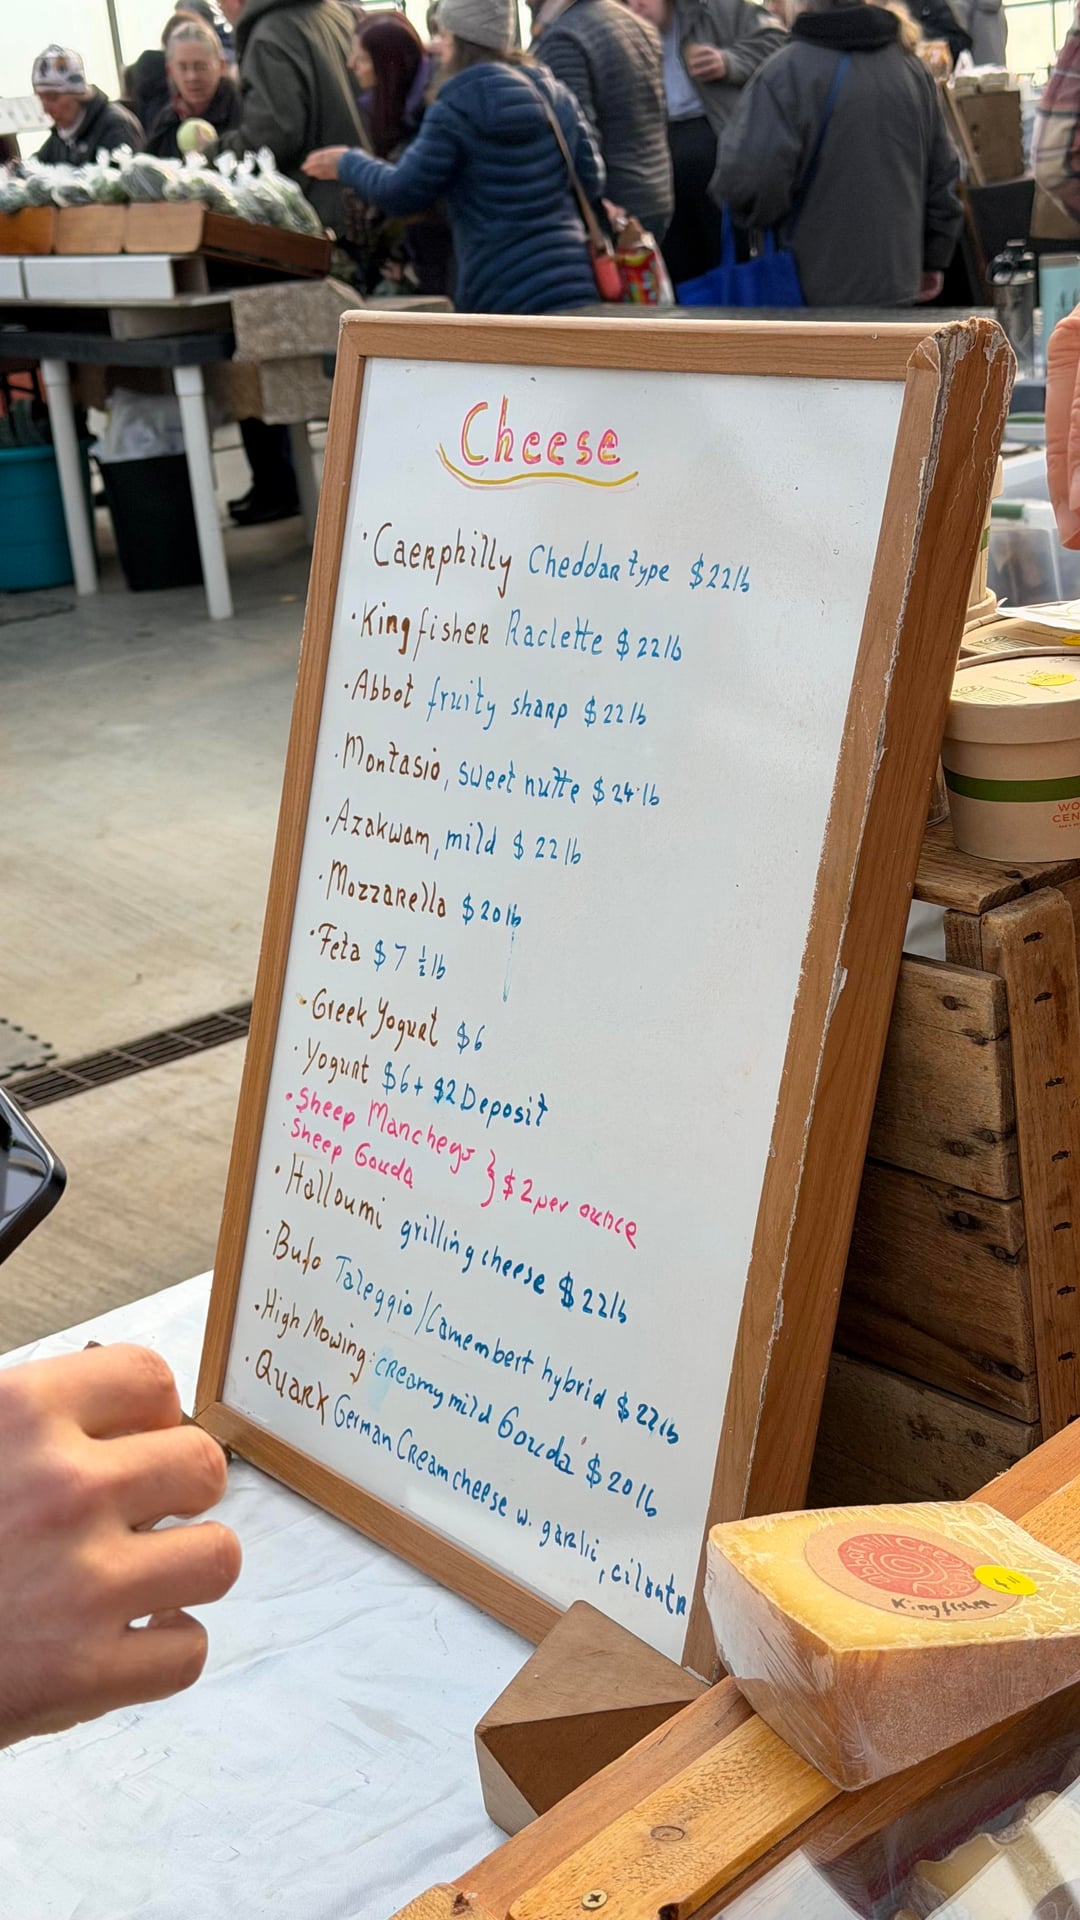 Cheese
· Caerphilly Cheddar type $22 lb
· Kingfisher Raclette $22 lb
· Abbot fruity sharp $22 lb
· Montasio, sweet nutte $24 lb
· Azakwam, mild $22 lb
· Mozzarella $20 lb
· Feta $7 ½ lb
· Greek Yogurt $6
· Yogurt $6 + $2 Deposit
· Sheep Manchego
· Sheep Gouda } $2 per ounce
· Halloumi grilling cheese $22 lb
· Bufo Taleggio/Camembert hybrid $22 lb
· High Mowing: creamy mild Gouda $20 lb
· Quark German Cream cheese w. garlic, cilantr
Kingfisher
WO
CEN